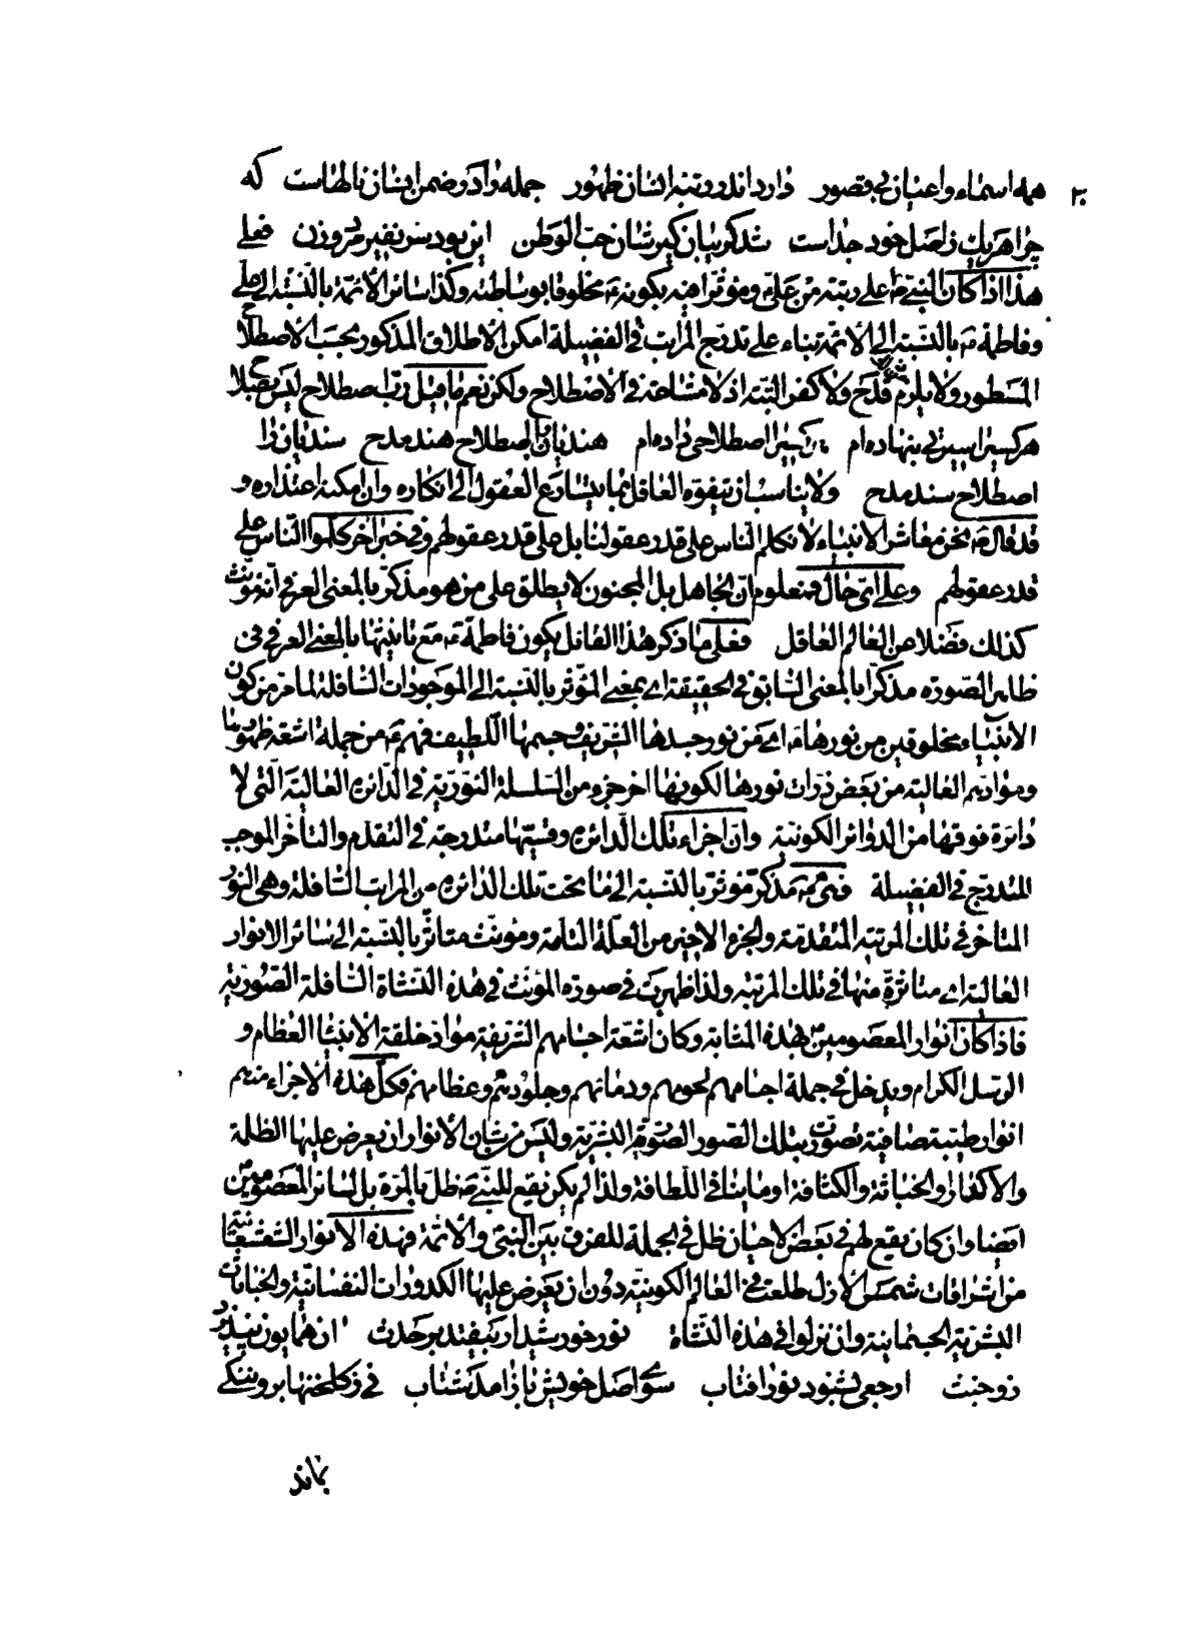 ٢٠ همه اسماء و اعیان بی قصور دارد اندر رتبه انسان ظهور جمله را در ضمن انسان نالهاست که
چرا هر یک ز اصل خود جداست شد کریبان کیرشان حب الوطن این بود سر نفیر مرد و زن فعلی
هذا اذا کان النبی ص اعلی رتبة من علی ع و مؤثرا فیه بکونه ع مخلوقا بوساطته و کذا سائر الائمة بالنسبة الی علی
و فاطمة ع بالنسبة الی الائمة بناء علی تدرج المراتب فی الفضیلة امکن الاطلاق المذکور بحسب الاصطلاح
المسطور ولا یلزم قدح ولا کفر البتة اذ لا مشاحة فی الاصطلاح ولکن نعم ما قیل رب اصطلاح لیس بصلاح
هر کسی را سیرتی بنهاده ام هر کسی را اصطلاحی داده ام هندیان را اصطلاح هند مدح سندیان را
اصطلاح سند مدح ولا یناسب ان یتفوه العاقل بما یتسارع العقول الی انکاره وان امکنه اعتذاره و
قد قال ص نحن معاشر الانبیاء لا نکلم الناس علی قدر عقولنا بل علی قدر عقولهم وفی خبر آخر کلموا الناس علی
قدر عقولهم وعلی ای حال فمعلوم ان الجاهل بل المجنون لا یطلق علی من هو مذکر بالمعنی العرفی انه مؤنث
کذلک فضلا عن العالم العاقل فعلی ما ذکر هذا القائل یکون فاطمة ع مع تانیثها بالمعنی العرفی فی
ظاهر الصورة مذکرا بالمعنی السابق فی الحقیقة ای بمعنی المؤثر بالنسبة الی الموجودات السافلة لما مر من کون
الانبیاء مخلوقین من نورها ع ای من نور جسدها الشریف و جسمها اللطیف فهم ع من جملة اشعة ظهورها
و موادهم العالیة من بعض ذرات نورها لکونها اخر جزء من السلسلة النوریة فی الدائرة العالیة التی لا
دائرة فوقها من الدوائر الکونیة وان اجزاء تلک الدائرة و قسیتها مندرجة فی التقدم والتاخر الموجب
للتدرج فی الفضیلة فهی ع مذکر مؤثر بالنسبة الی ما تحت تلک الدائرة من المراتب السافلة وهی النور
المتاخر فی تلک المرتبة المتقدمة والجزء الاخیر من العلة التامة ومؤنث متاثر بالنسبة الی سائر الانوار
العالیة ای متاثرة منها فی تلک المرتبة ولذا ظهرت فی صورة المؤنث فی هذه النشاة السافلة الصوریة
فاذا کان انوار المعصومین بهذه المثابة وکان اشعة اجسامهم الشریفة مواد خلقة الانبیاء العظام و
الرسل الکرام ویدخل فی جملة اجسامهم لحومهم ودمائهم وجلودهم وعظامهم فکل هذه الاجزاء منهم
انوار طیبة صافیة تصورت بتلک الصور الصوریة البشریة ولیس من شان الانوار ان یعرض علیها الظلة
والاکفار والخباثة والکثافة او ما ینافی اللطافة ولذا لم یکن یقع للنبی ص ظل بالمرة بل لسائر المعصومین
ایضا وان کان یقع لهم فی بعض الاحیان ظل فی الجملة للفرق بین النبی والائمة فهذه الانوار التشعشعیة
من اشراقات شمس الازل طلعت فی العالم الکونیة دون ان یعرض علیها الکدورات النفسانیة والخباثات
البشریة الجسمانیة وان نزلوا فی هذه النشاة نور خورشید ار بیفتد بر حدث ان همایون نور نپذیرد
ز و خبث ارجعی بشنود نور افتاب سوی اصل خویش باز امد شتاب نی ز کلخنها بر و ننکی
بماند